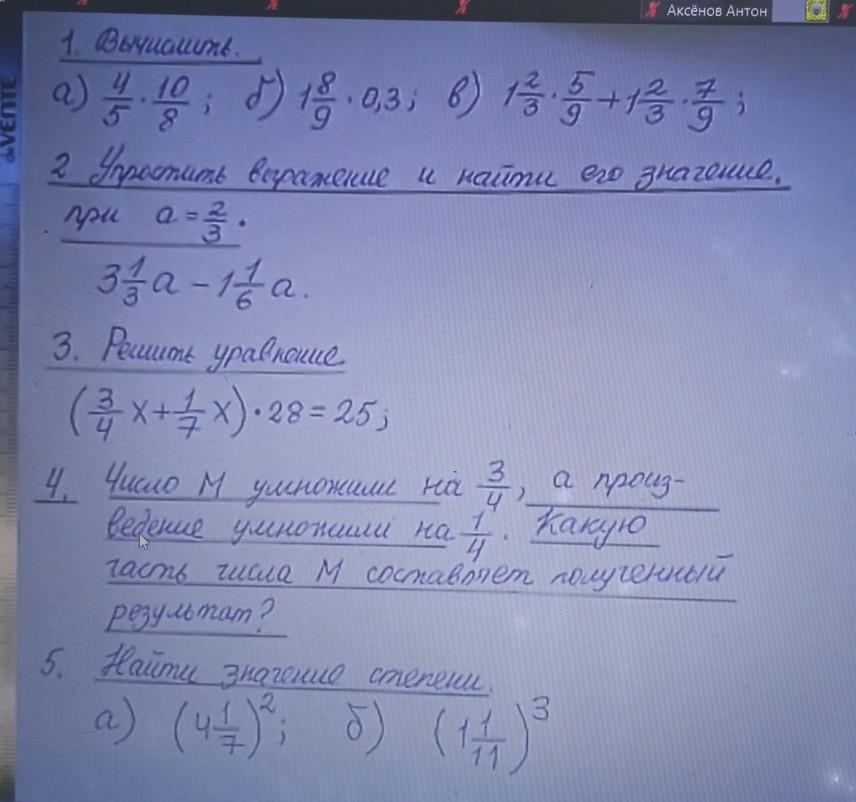 Аксёнов Антон
deVENTE
1. Вычислить.
а) 4/5 · 10/8 ; б) 1 8/9 · 0,3 ; в) 1 2/3 · 5/9 + 1 2/3 · 7/9 ;
2 Упростить выражение и найти его значение.
при a = 2/3 .
3 1/3 a - 1 1/6 a .
3. Решить уравнение
(3/4 x + 1/7 x) · 28 = 25 ;
4. Число М умножили на 3/4 , а произ-
ведение умножили на 1/4 . Какую
часть числа М составляет полученный
результат?
5. Найти значение степени.
а) (4 1/7)² ; б) (1 1/11)³